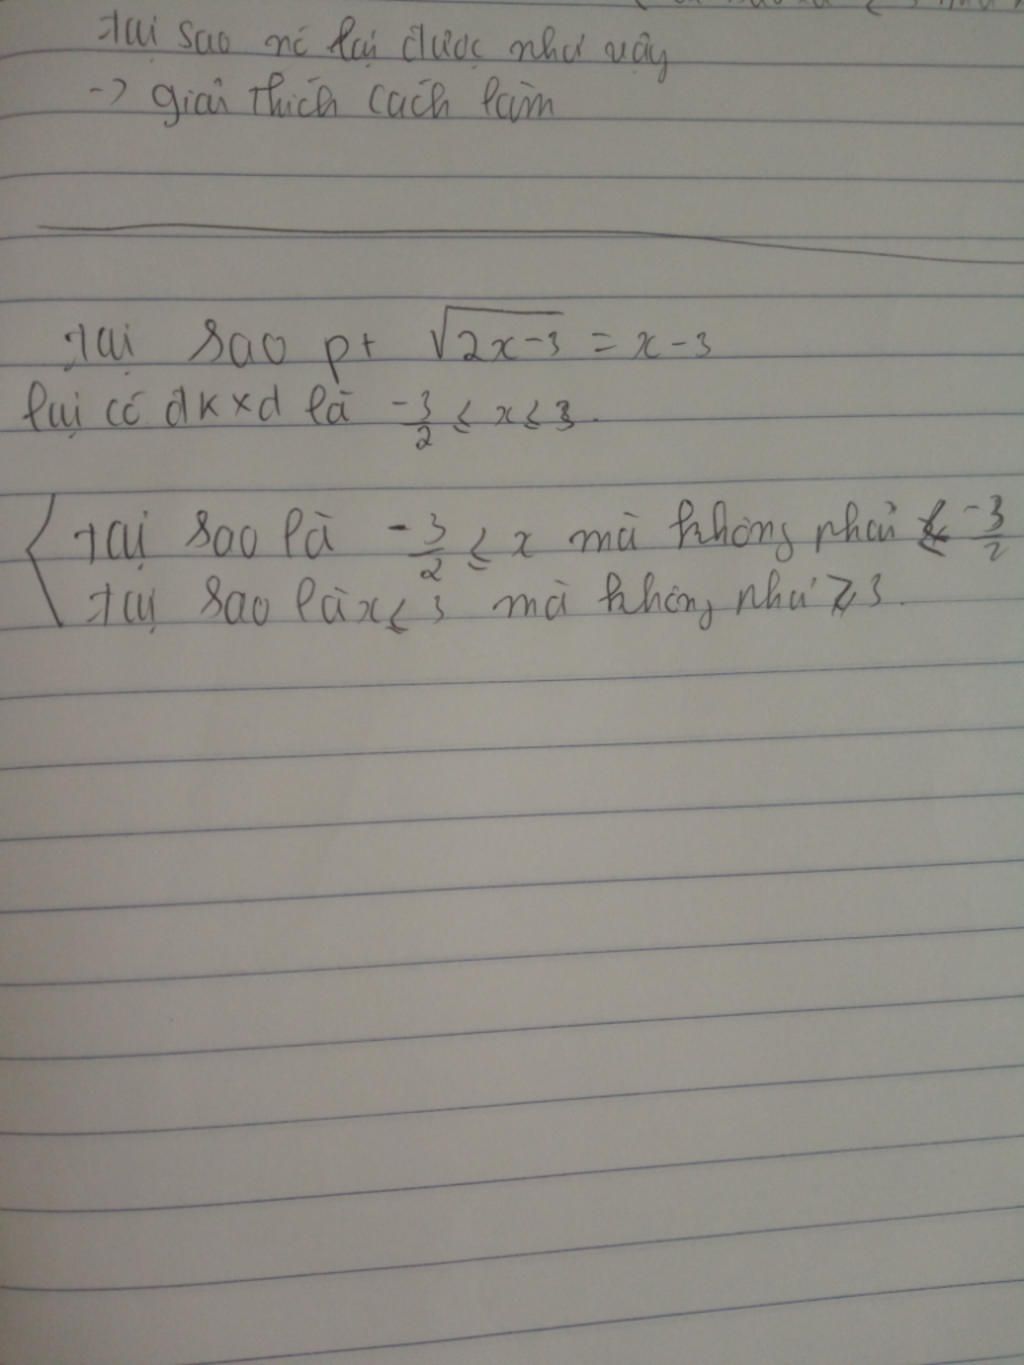 tại sao nó lại được như vậy
-> giải thích cách làm
tại sao pt √(2x-3) = x-3
lại có đkxđ là -3/2 ≤ x ≤ 3.
tại sao là -3/2 ≤ x mà không phải ≤ -3/2
tại sao là x ≤ 3 mà không phải ≥ 3.